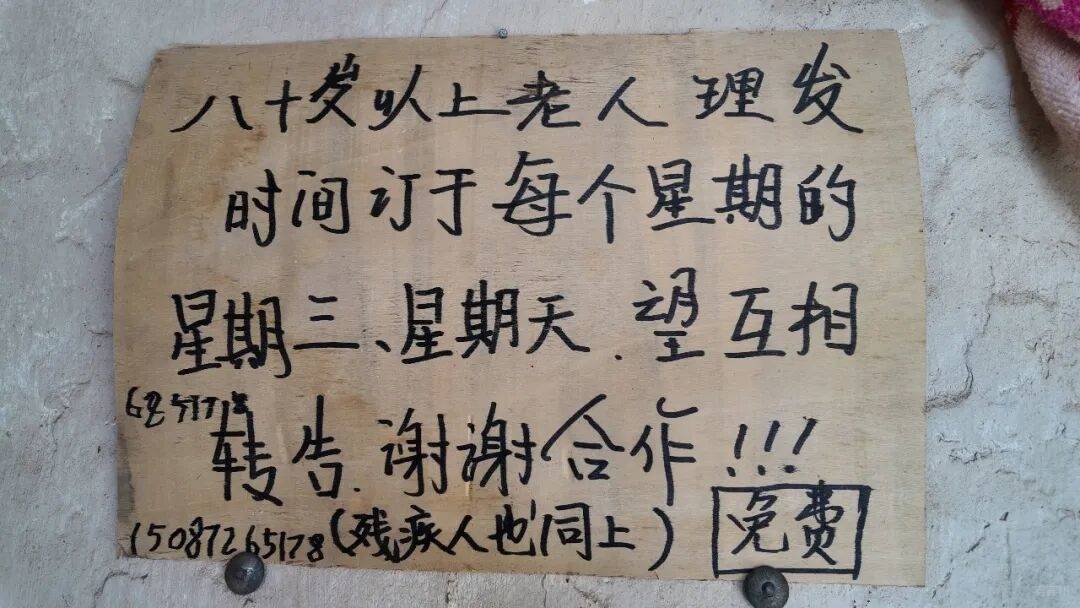 八十岁以上老人理发
时间订于每个星期的
星期三、星期天.望互相
转告.谢谢合作!!!
15087265178(残疾人也同上) 免费